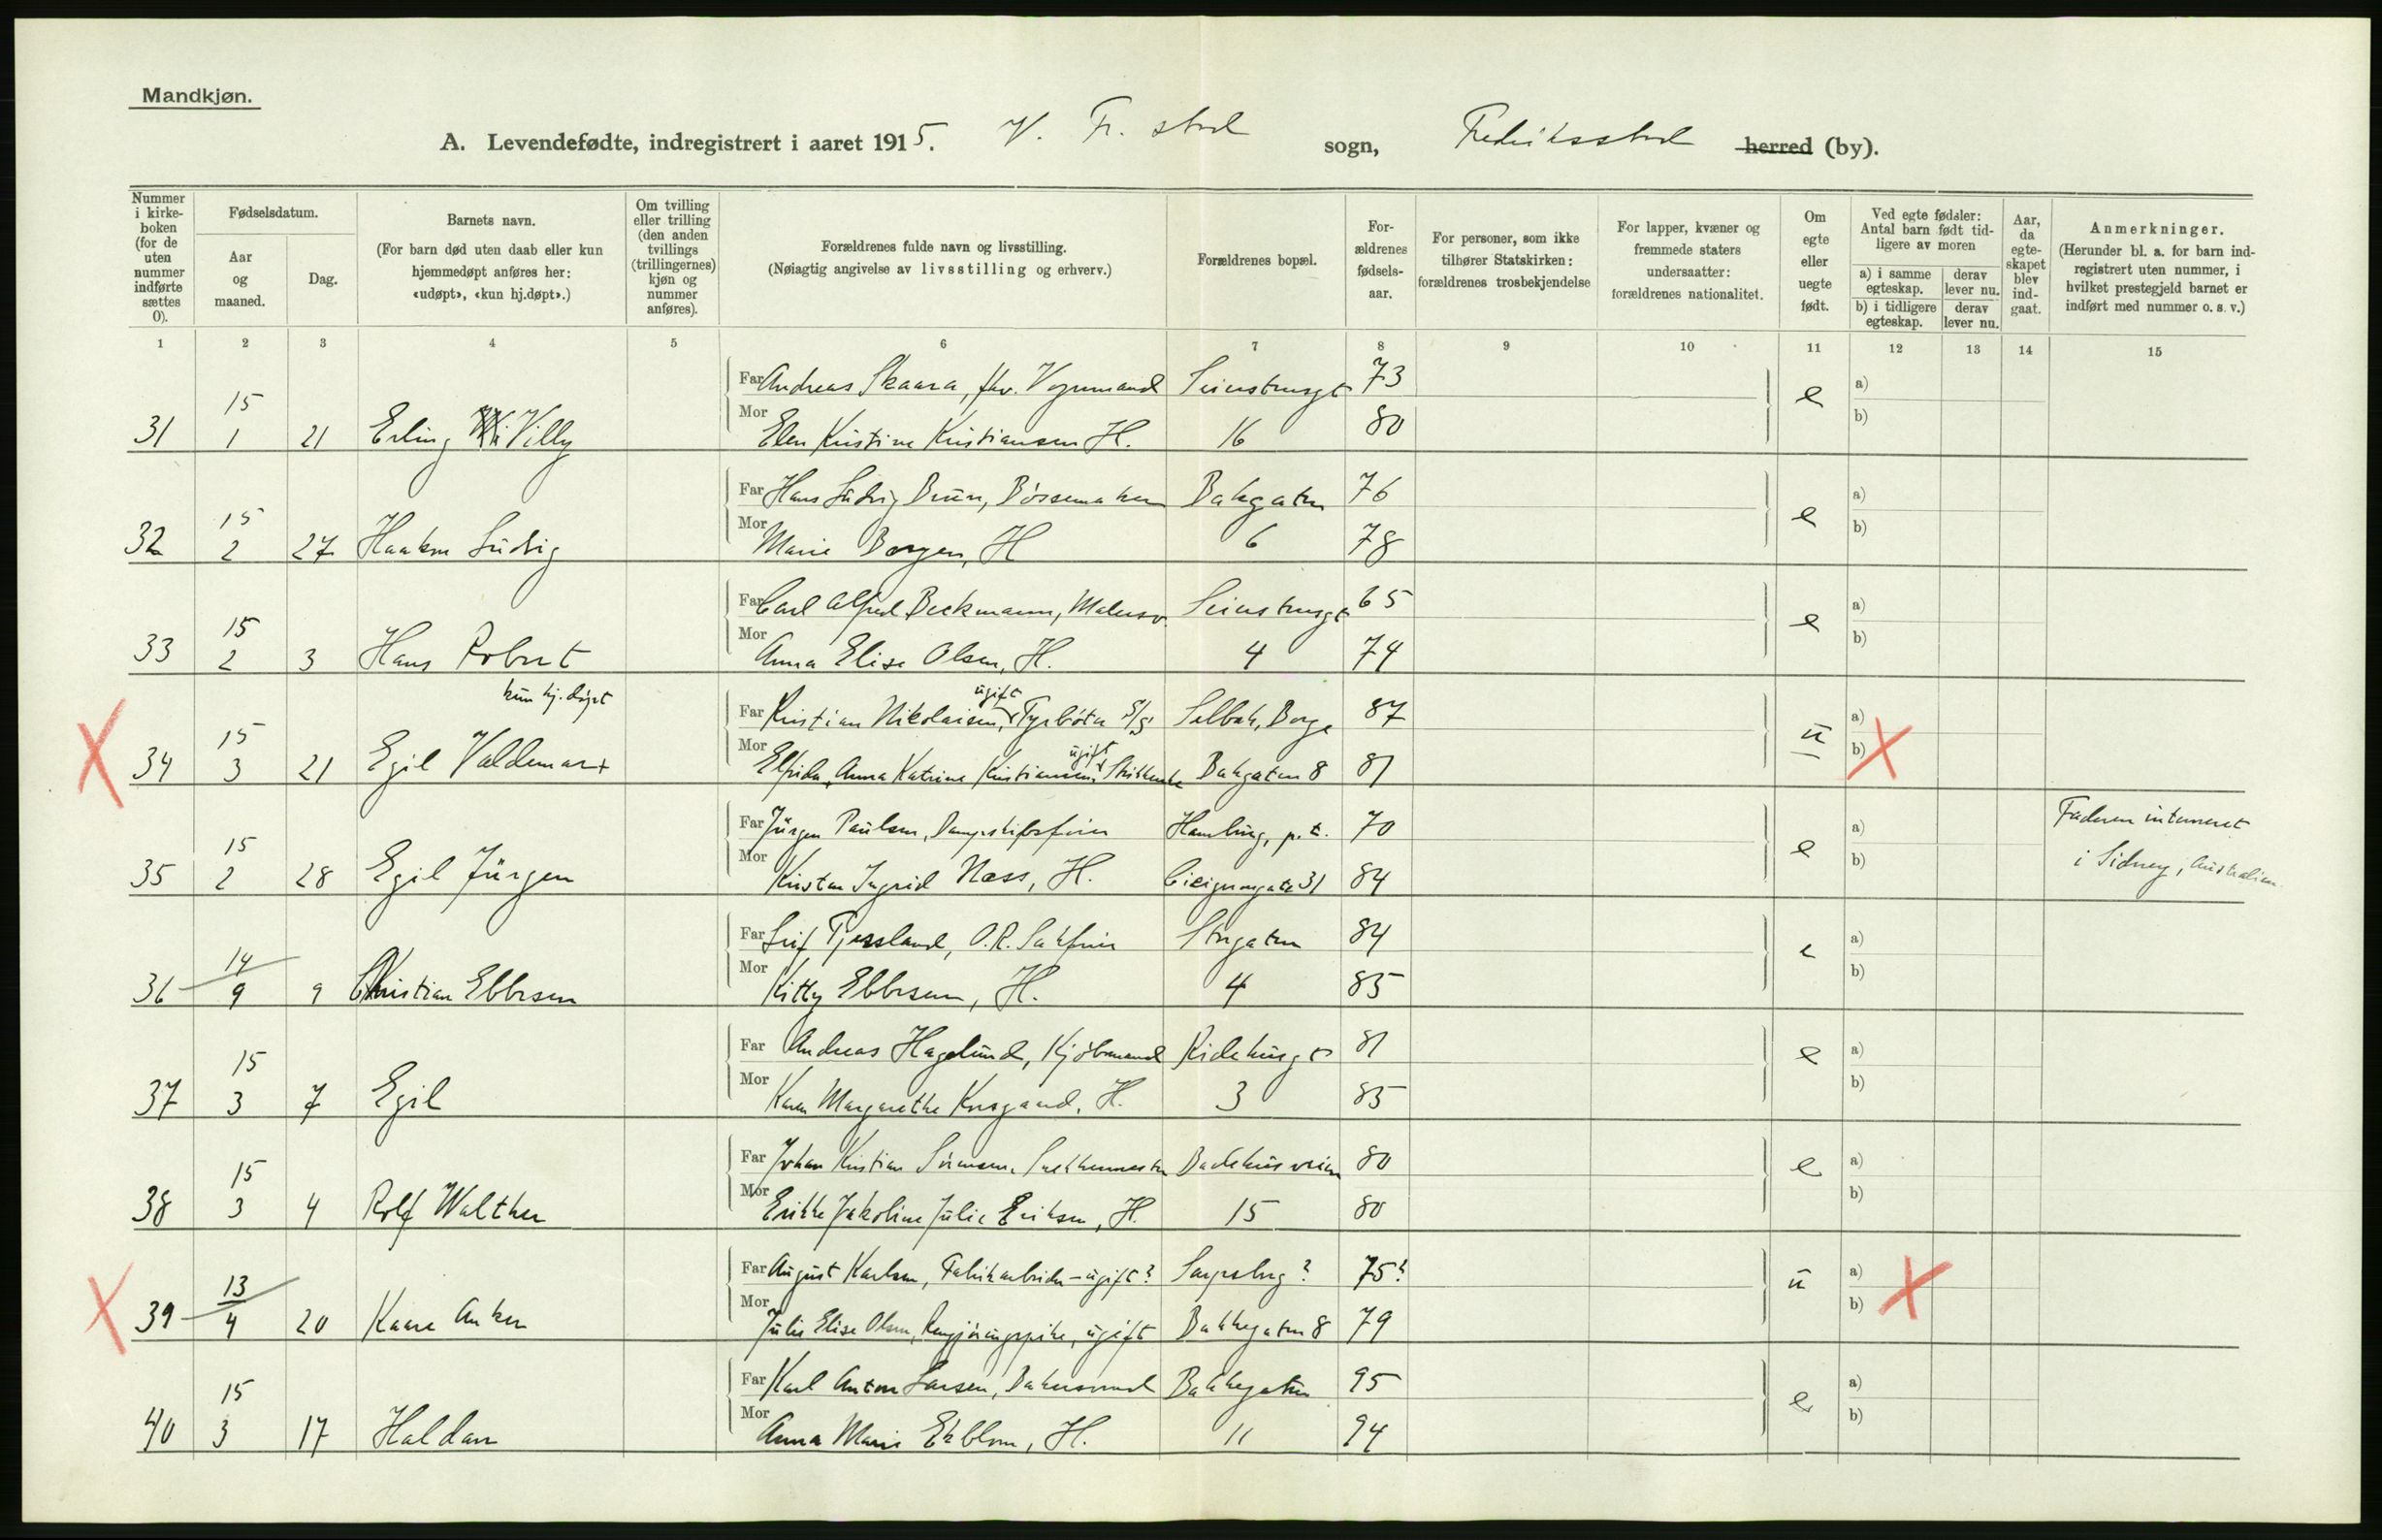 Mandkjøn.
A. Levendefødte, indregistrert i aaret 1915. V. Fr. stad sogn, Fredriksstad herred (by).
Nummer i kirkeboken (for de uten nummer indførte sættes 0).
Fødselsdatum.
Aar og maaned.
Dag.
Barnets navn.
(For barn død uten daab eller kun hjemmedøpt anføres her: «udøpt», «kun hj.døpt».)
Om tvilling eller trilling (den anden tvillings (trillingernes) kjøn og nummer anføres).
Forældrenes fulde navn og livsstilling.
(Nøiagtig angivelse av livsstilling og erhverv.)
Forældrenes bopæl.
Forældrenes fødselsaar.
For personer, som ikke tilhører Statskirken: forældrenes trosbekjendelse
For lapper, kvæner og fremmede staters undersaatter: forældrenes nationalitet.
Om egte eller uegte født.
Ved egte fødsler: Antal barn født tidligere av moren
a) i samme egteskap. derav lever nu.
b) i tidligere egteskap. derav lever nu.
Aar, da egteskapet blev indgaat.
Anmerkninger.
(Herunder bl. a. for barn indregistrert uten nummer, i hvilket prestegjeld barnet er indført med nummer o. s. v.)
1 2 3 4 5 6 7 8 9 10 11 12 13 14 15
Far Andreas Skaara, 73
31 15/1 21 Erling Villy e a) b)
Mor Elen Kristine Kristiansen H. 16 80
Far Hans Ludvig Bruun, Børsemaker Bakgaten 76
32 15/2 27 Haakon Ludvig e a) b)
Mor Marie Borgen, H 6 78
Far Carl Alfred Beckmann, Malersv. 65
33 15/2 3 Hans Robert e a) b)
Mor Anna Elise Olsen, H. 4 74
kun hj. døpt
Far Kristian Nikolaisen, ugift Fyrbøter Selbak, Borge 87
34 15/3 21 Egil Valdemar + u a) b)
Mor Elfrida Anna Katrine Kristiansen, ugift Bakgaten 8 81
Far Jürgen Paulsen, Dampskibsfører Hamburg, p.t. 70 Faderen interneret
35 15/2 28 Egil Jürgen e a) b) i Sidney, Australien.
Mor Kirsten Ingrid Næss, H. 31 84
Far Leif Tjersland, O.R. Sakfører Storgaten 84
36 14/9 9 Christian Ebbesen e a) b)
Mor Kitty Ebbesen, H. 4 85
Far Andreas Hagelund, Kjøbmand Ridehusgt 81
37 15/3 7 Egil e a) b)
Mor Karen Margarethe Korsgaard, H. 3 85
Far Johan Kristian Sørensen, Snekkermester Badehusveien 80
38 15/3 4 Rolf Walther e a) b)
Mor Erikke Jakoline Julie Eriksen, H. 15 80
Far August Karlsen, Fabrikarbeider - ugift? Sarpsborg? 75?
39 13/4 20 Kaare Anker u a) b)
Mor Julie Elise Olsen, Rengjøringspike, ugift Bakkegaten 8 79
Far Karl Anton Larsen, Bakersvend Bakkegaten 95
40 15/3 17 Haldan e a) b)
Mor Anna Marie Ekblom, H. 11 94